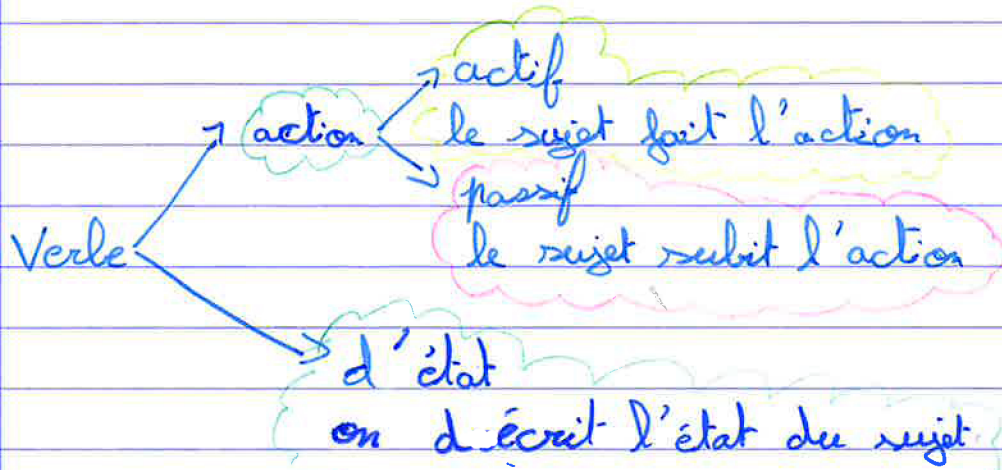 actif
action le sujet fait l'action
passif
Verbe le sujet subit l'action
d'état
on d écrit l'état du sujet.